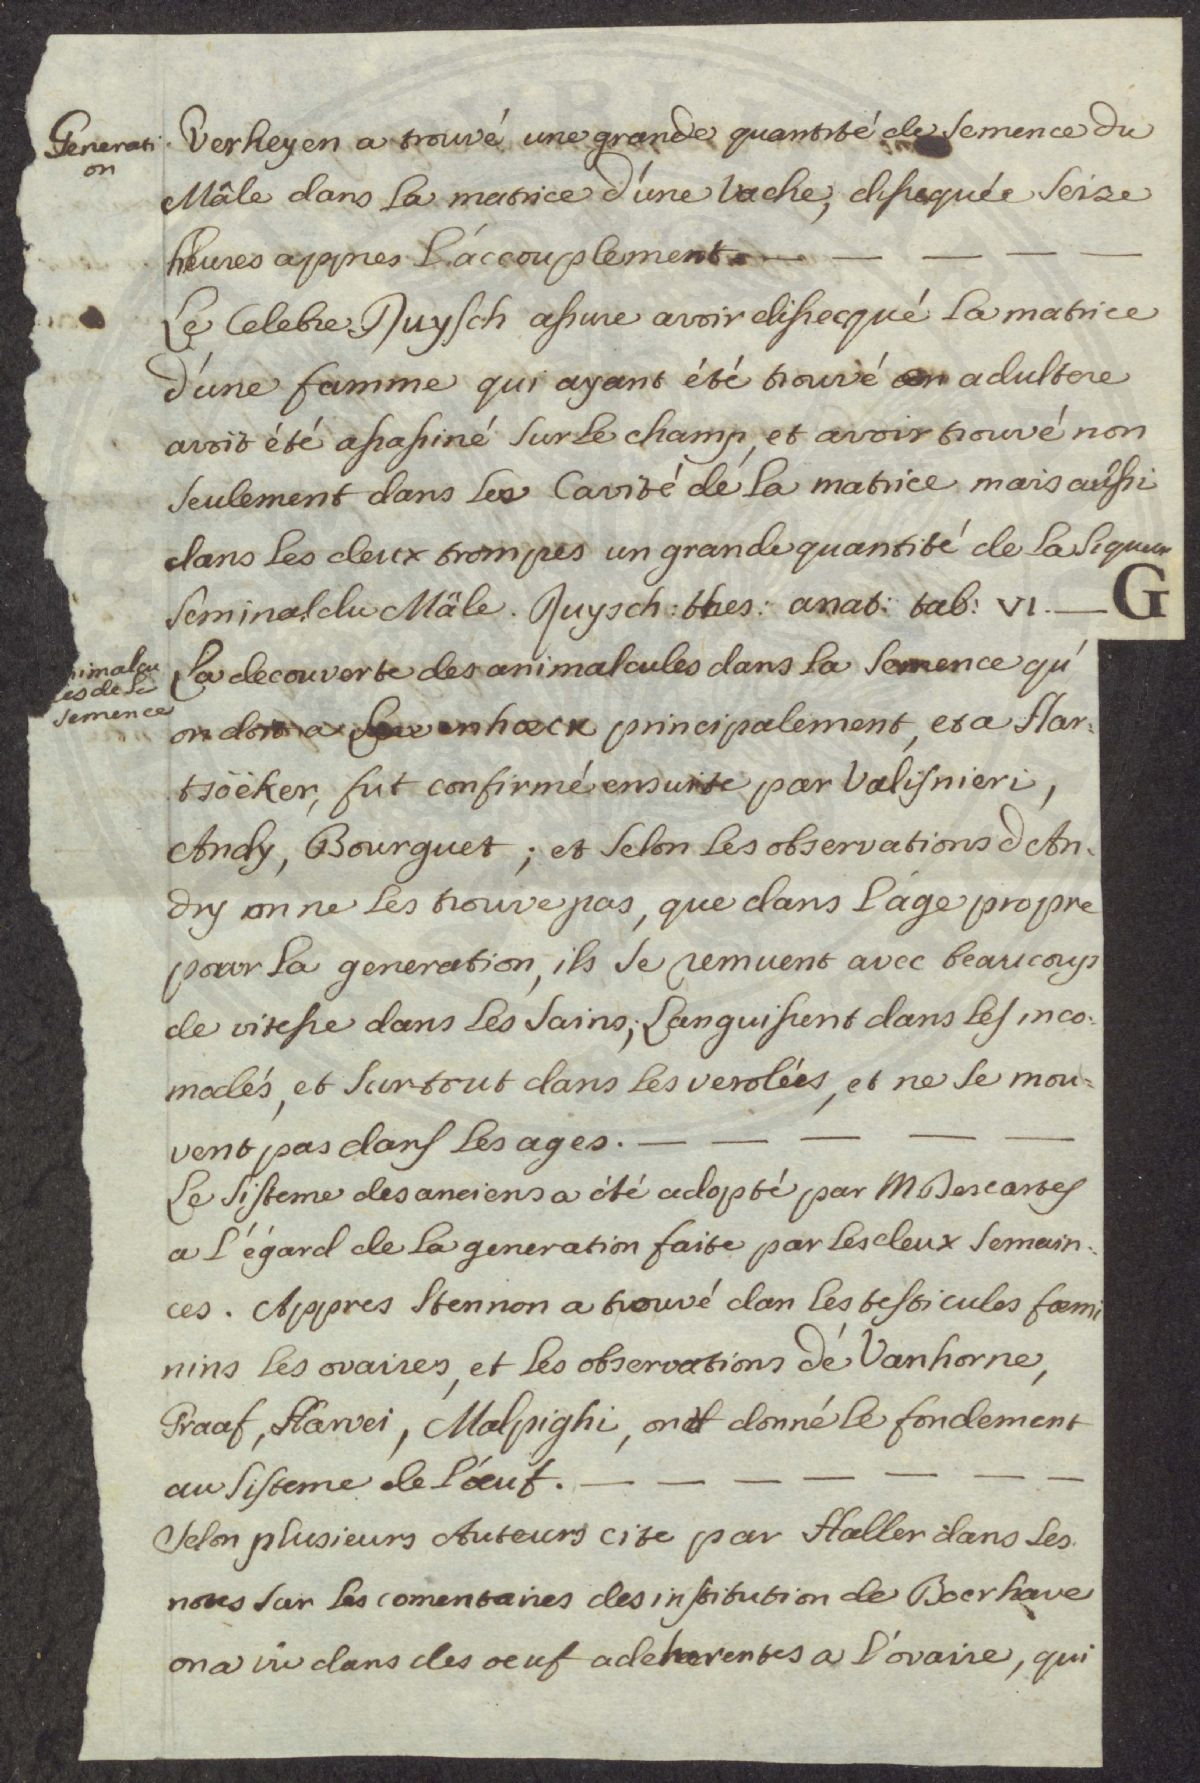 Generati
on
Verheyen a trouvé une grande quantité de Semence du
Mâle dans la matrice d'une Vache, dissequée Seize
heures appres L'accouplement. — — — — —
Le Celebre Ruysch assure avoir dissecqué La matrice
d'une famme qui ayant été trouvé en adultere
avoit été assassiné Sur Le champ, et avoir trouvé non
Seulement dans Les Cavité dé La matrice mais aussi
dans les deux trompes un grande quantité de La Liqueur
Seminal du Mâle. Ruysch: thes: anat: tab: VI. — G
nimalcu
les de Le
Semence
La decouverte des animalcules dans La Semence qu'
on doit a Leuvenhoeck principalement, et a Har-
tsöeker, fut confirmé ensuite par Valisnieri,
Andy, Bourguet; et Selon Les observations d'An-
dry on ne Les trouve pas, que dans L'age propre
pour La generation, ils Se remuent avec beaucoup
de vitesse dans Les Sains; Languissent dans Les inco-
modés, et Sur-tout dans Les verolées, et ne Se mou-
vent pas dans Les ages. — — — — —
Le Sisteme des anciens a été adopté par M Descartes
a L'égard de La generation faite par Les deux Semain-
ces. Appres Stennon a trouvé dan Les testicules fœmi
nins Les ovaires, et Les observations dé Vanhorne,
Graaf, Harvei, Malpighi, ont donné Le fondement
au Sisteme de L'œuf. — — — — — — —
Selon plusieurs Auteurs cite par Haller dans Les
notes Sur Les comentaires des institution de Boerhave
on a vu dans des oeuf adeherentes a L'ovaire, qui